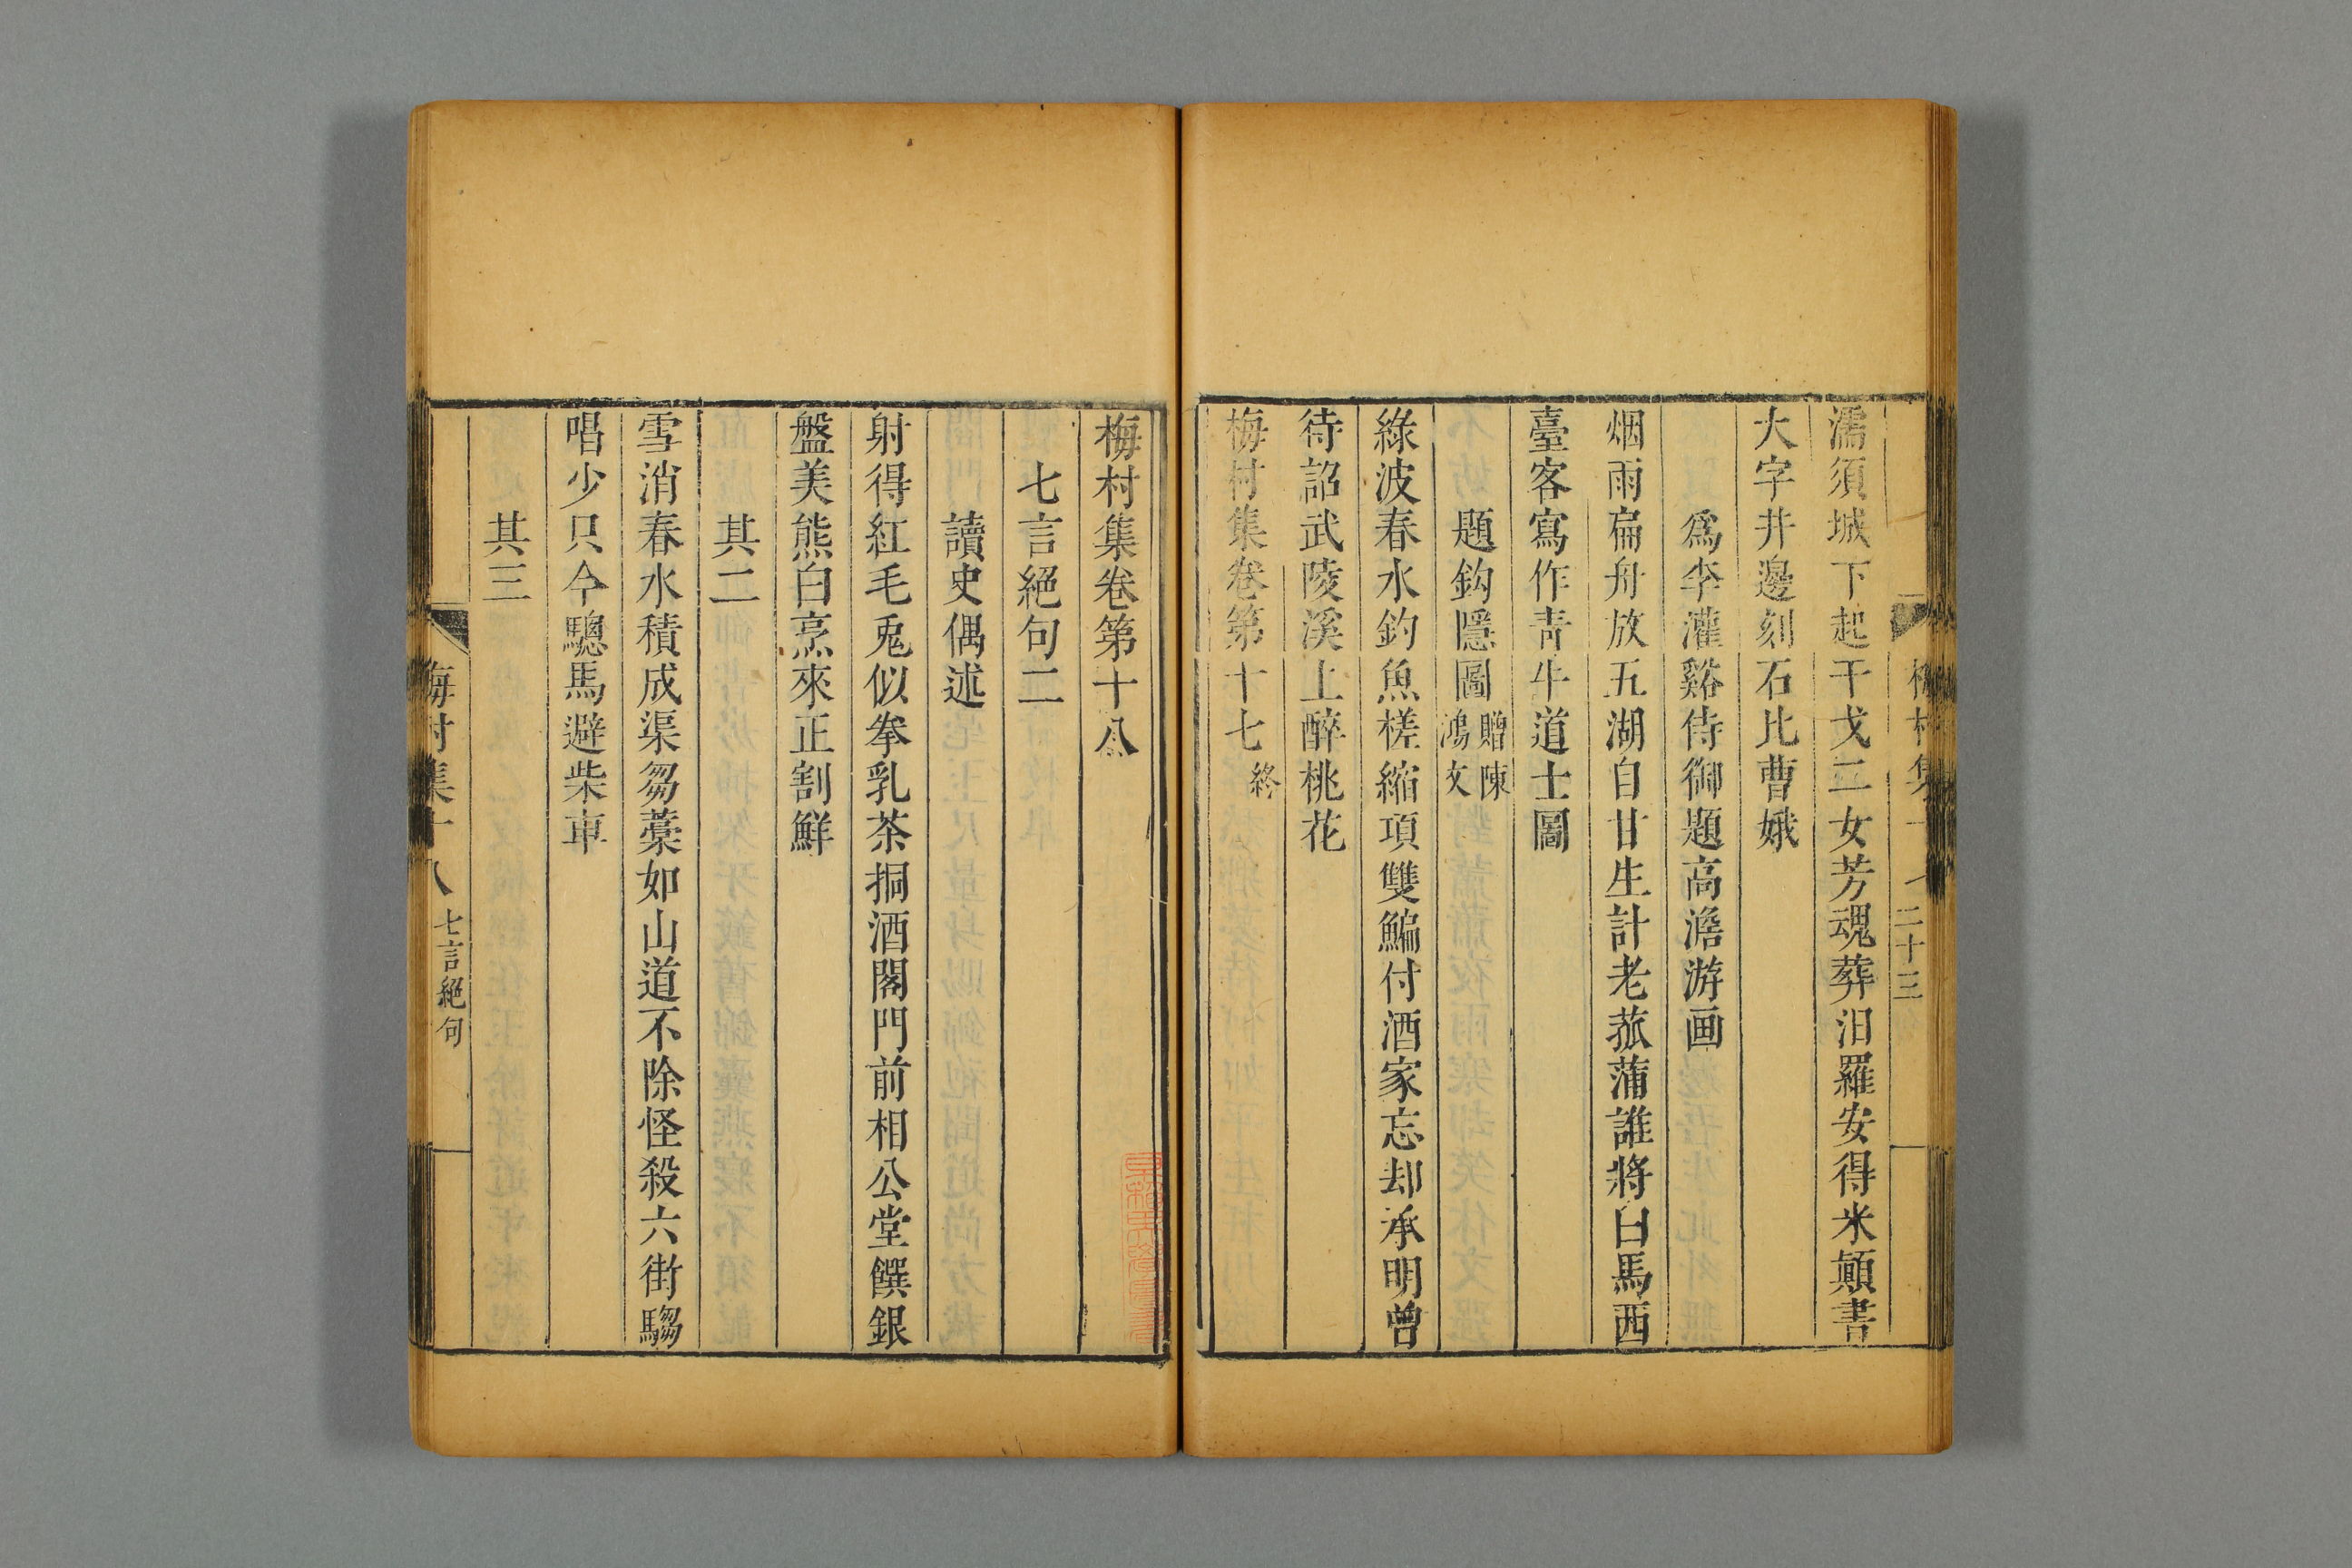 濡須城下起干戈二女芳魂葬汨羅安得米顛書
大字井邊刻石比曹娥
爲李灌谿侍御題高澹游画
烟雨扁舟放五湖自甘生計老菰蒲誰將白馬西
臺客寫作靑牛道士圖
題鈎隱圖贈陳鴻文
綠波春水釣魚槎縮項雙鯿付酒家忘却承明曾
待詔武陵溪上醉桃花
梅村集卷第十七終
二十三
梅村集卷第十八
七言絕句二
讀史偶述
射得紅毛兎似拳乳茶挏酒閣門前相公堂饌銀
盤美熊白烹來正割鮮
其二
雪消春水積成渠芻藁如山道不除怪殺六街騶
唱少只今驄馬避柴車
其三
梅村集十八 七言絕句